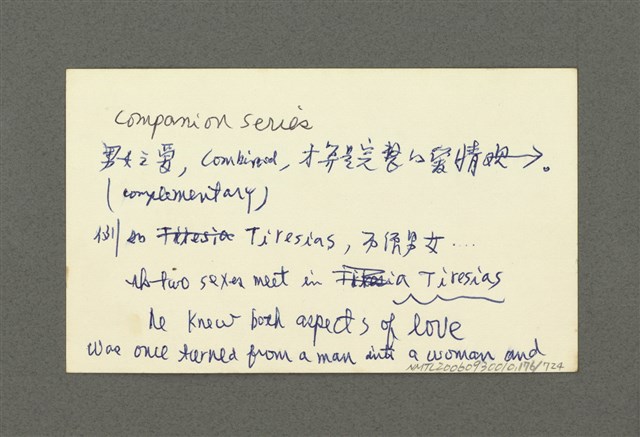 companion series
男女之愛, combined, 才算是完整的愛情觀→。
(complementary)
例如 Tiresia Tiresias, 不懂男女....
two sexes meet in Tiresia Tiresias
he knew both aspects of love
was once turned from a man into a woman and
NMTL20060930010.176/724